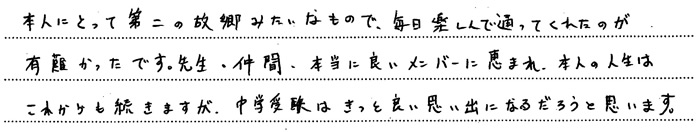 本人にとって第二の故郷みたいなもので、毎日楽しんで通ってくれたのが
有難かったです。先生、仲間、本当に良いメンバーに恵まれ、本人の人生は
これからも続きますが、中学受験はきっと良い思い出になるだろうと思います。